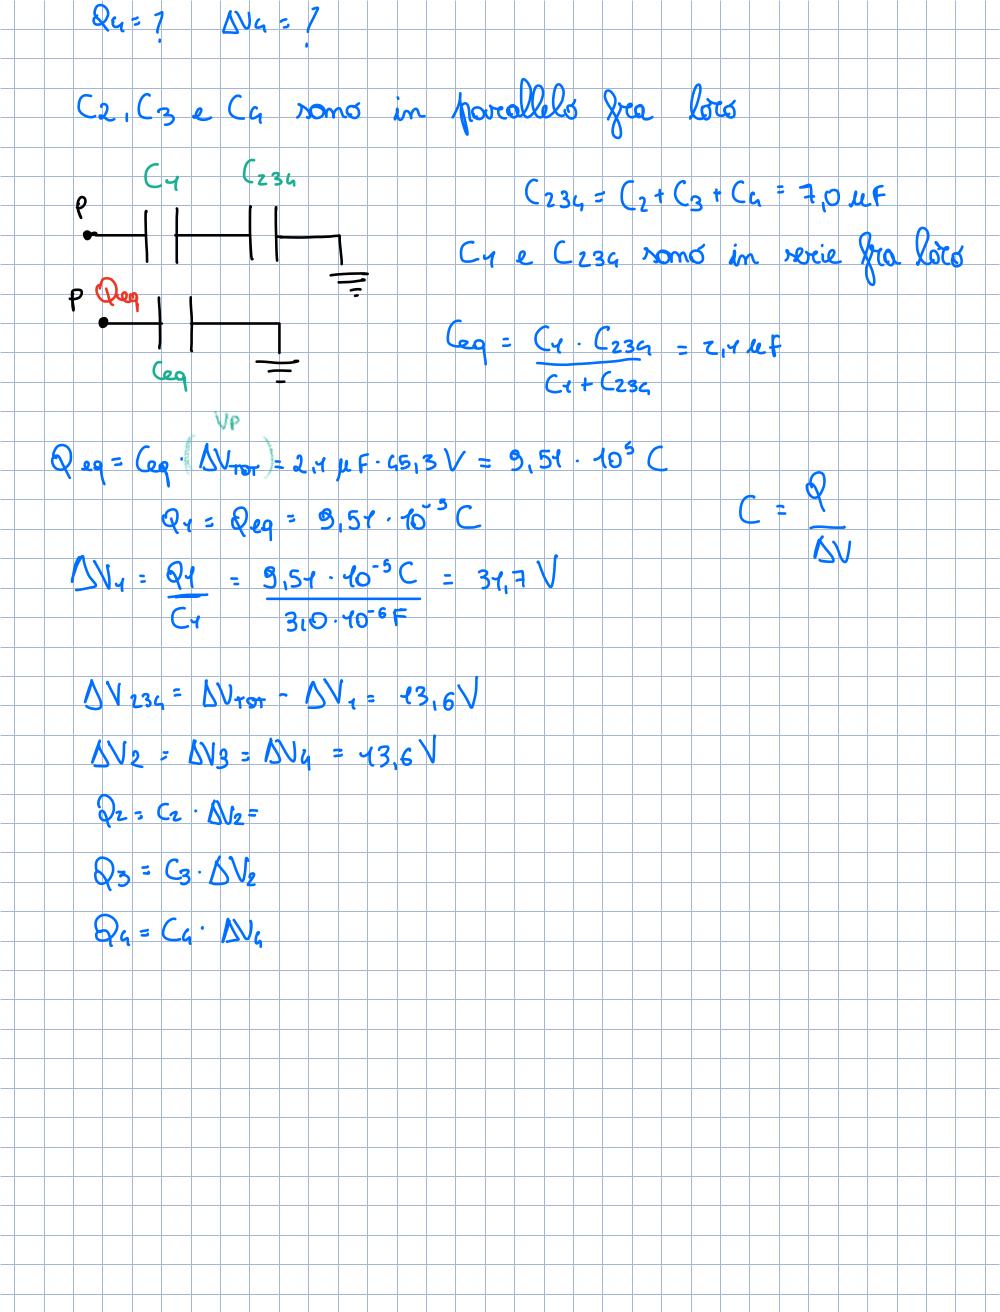 Q4 = ? ΔV4 = ?
C2, C3 e C4 sono in parallelo fra loro
C1 C234
P
C234 = C2 + C3 + C4 = 7,0 μF
C1 e C234 sono in serie fra loro
P Qeq
Ceq
Ceq = C1 · C234 / C1 + C234 = 2,1 μF
VP
Qeq = Ceq · (ΔVTOT) = 2,1 μF · 45,3 V = 9,51 · 10⁵ C
Q1 = Qeq = 9,51 · 10⁻⁵ C
C = Q / ΔV
ΔV1 = Q1 / C1 = 9,51 · 10⁻⁵ C / 3,0 · 10⁻⁶ F = 31,7 V
ΔV234 = ΔVTOT - ΔV1 = 13,6 V
ΔV2 = ΔV3 = ΔV4 = 13,6 V
Q2 = C2 · ΔV2 =
Q3 = C3 · ΔV2
Q4 = C4 · ΔV4